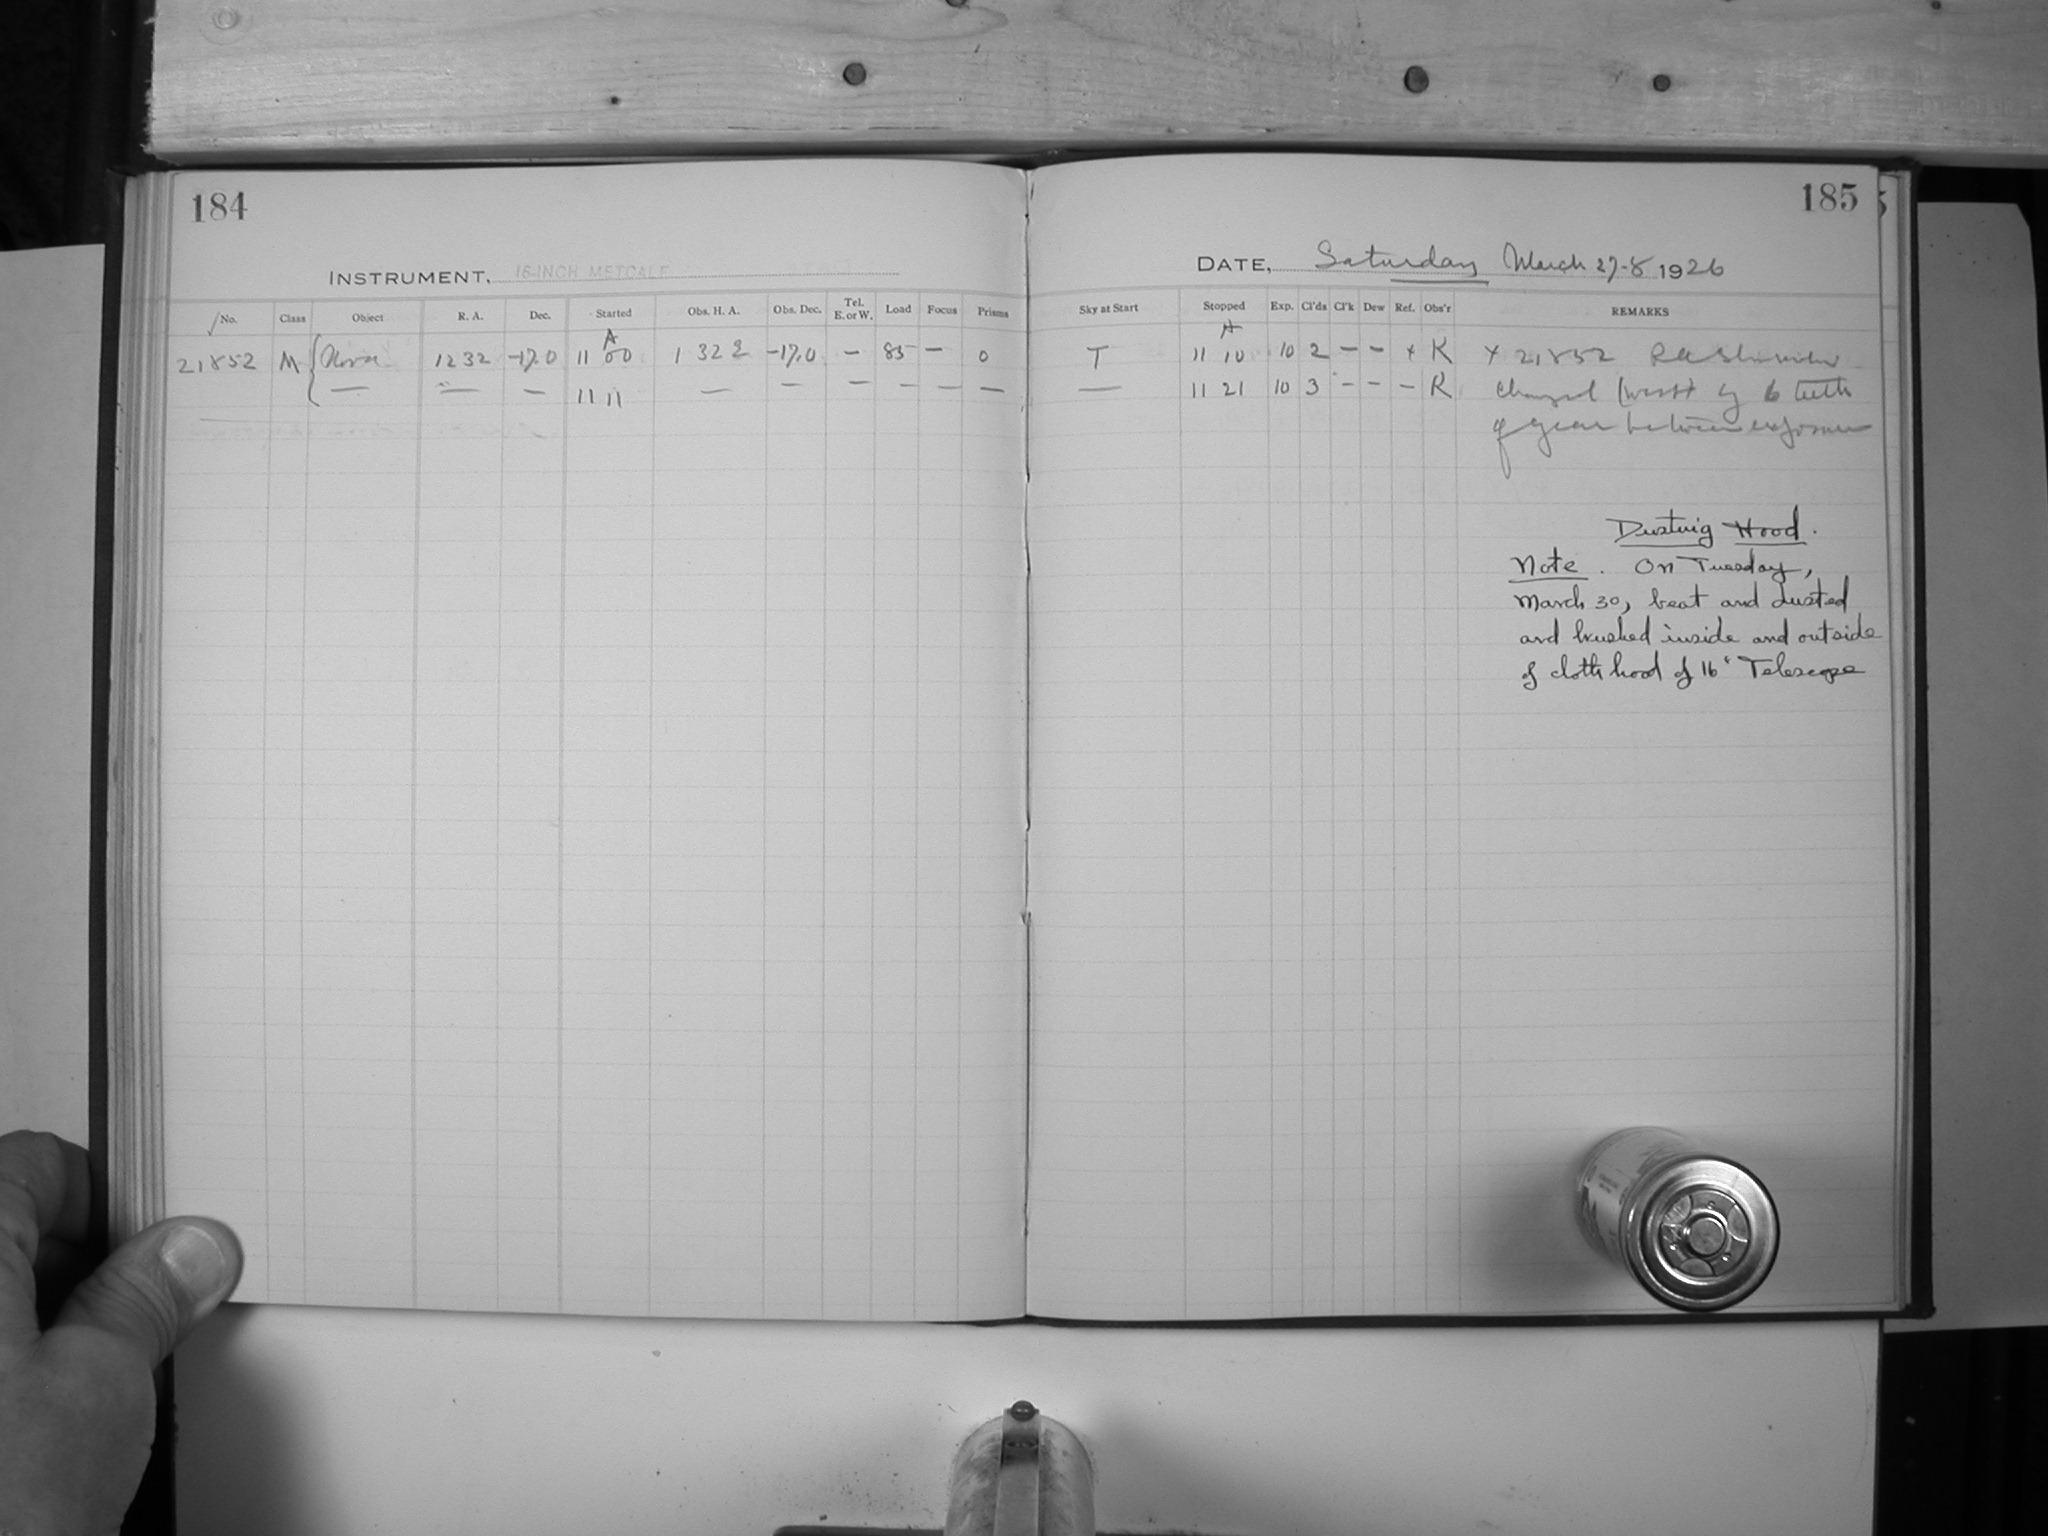 184
INSTRUMENT, 16-INCH METCALF
No. Class Object R. A. Dec. Started Obs. H. A. Obs. Dec. Tel. E. or W. Load Focus Prisms
A
21852 M 12 32 -17.0 11 00 1 32 2 -17.0 — 85 — 0
— — — 11 11 — — — — — —
185
DATE, Saturday March 27-8 1926
Sky at Start Stopped Exp. Cl'ds Cl'k Dew Ref. Obs'r REMARKS
A
T 11 10 10 2 — — + K + 21852 RA
— 11 21 10 3 - — — K changed (west) by 6 teeth
of gear between exposures
Dusting Hood.
Note. On Tuesday,
March 30, beat and dusted
and brushed inside and outside
of cloth hood of 16" Telescope